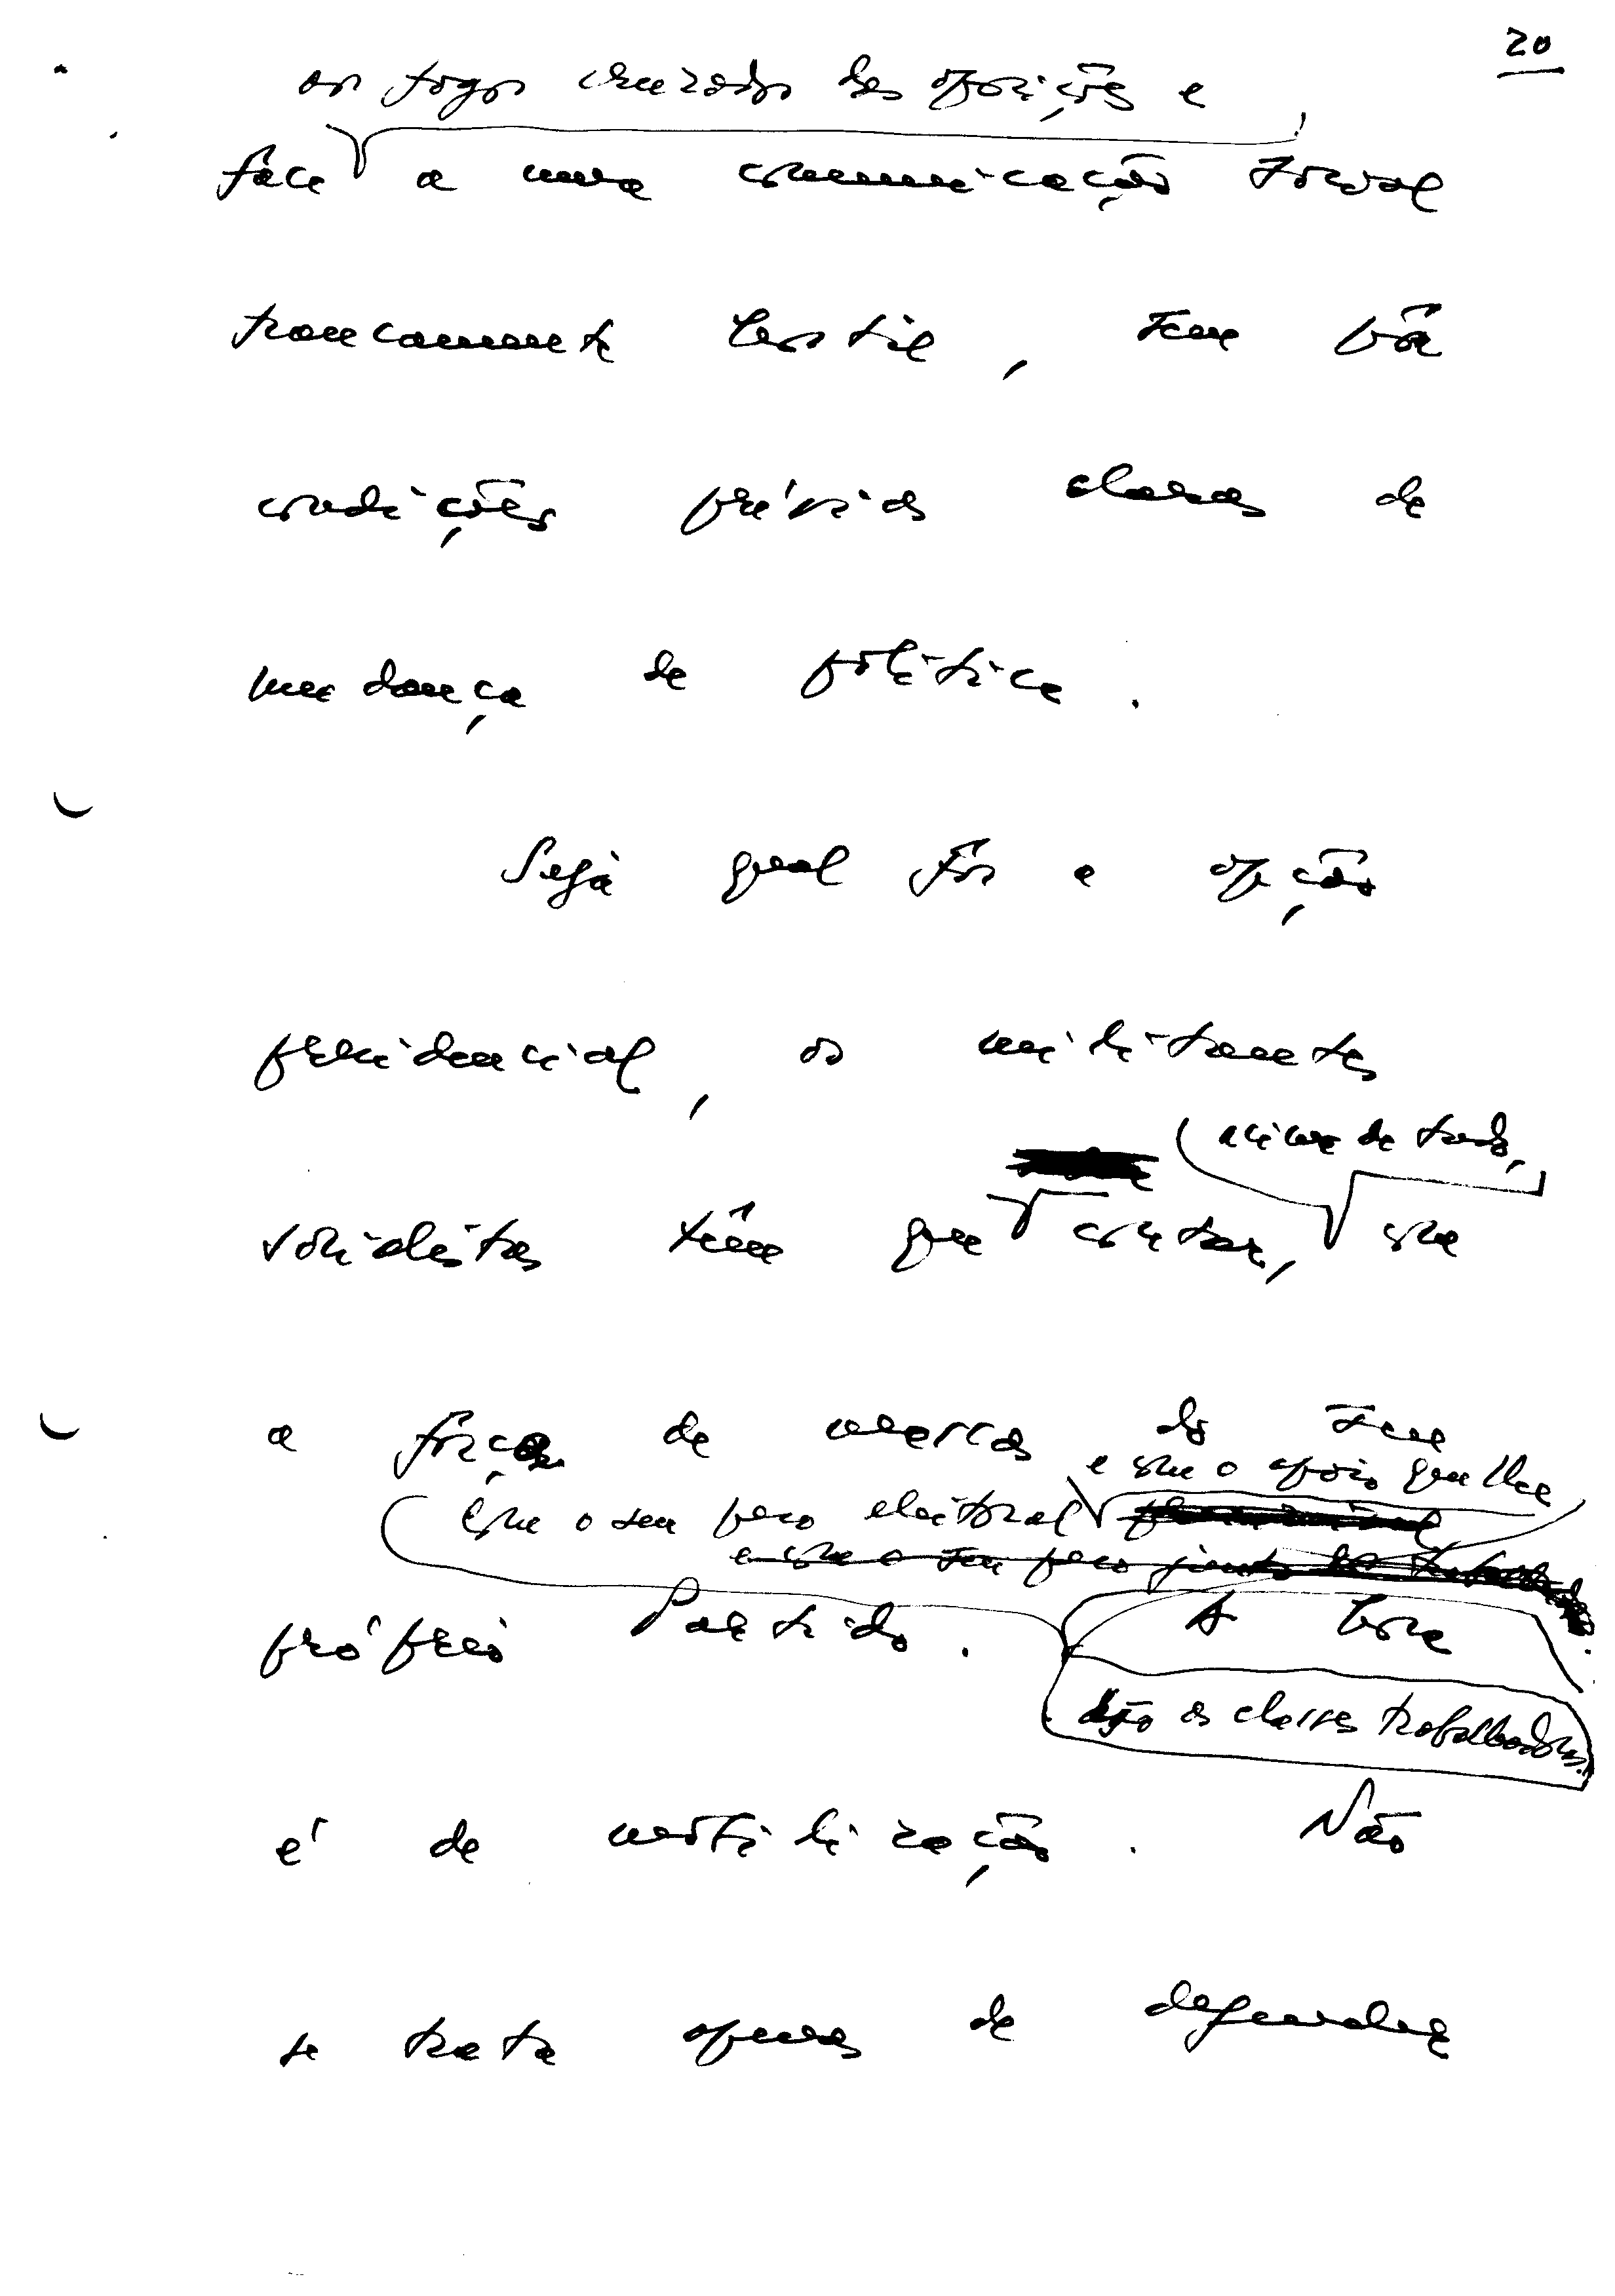 20
os fogos cruzados das oposições e
face a uma comunicação social
francamente hostil, sem pôr
condições prévias claras de
mudança de política.
Seja qual fôr a opção
presidencial, os militantes
acima de tudo,
socialistas têm que contar, com
a força de massas do seu
e com o apoio que lhe
com o seu peso eleitoral
e com o seu peso junto
próprio Partido. A hora
dão as classes trabalhadoras.
é de mobilização. Não
se trata apenas de defender